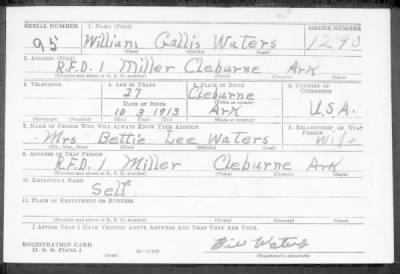 SERIAL NUMBER 1. NAME (Print) ORDER NUMBER
95 William Gallis Waters 1290
(First) (Middle) (Last)
2. ADDRESS (Print)
R.F.D. 1 Miller Cleburne Ark
(Number and street or R. F. D. number) (Town) (County) (State)
3. TELEPHONE 4. AGE IN YEARS 5. PLACE OF BIRTH 6. COUNTRY OF CITIZENSHIP
27 Cleburne
(Town or county)
DATE OF BIRTH
10 3 1913 Ark U.S.A.
(Exchange) (Number) (Mo.) (Day) (Yr.) (State or country)
7. NAME OF PERSON WHO WILL ALWAYS KNOW YOUR ADDRESS 8. RELATIONSHIP OF THAT PERSON
Mrs Bettie Lee Waters Wife
(Mr., Mrs., Miss) (First) (Middle) (Last)
9. ADDRESS OF THAT PERSON
R.F.D. 1 Miller Cleburne Ark
(Number and street or R. F. D. number) (Town) (County) (State)
10. EMPLOYER'S NAME
Self
11. PLACE OF EMPLOYMENT OR BUSINESS
(Number and street or R. F. D. number) (Town) (County) (State)
I AFFIRM THAT I HAVE VERIFIED ABOVE ANSWERS AND THAT THEY ARE TRUE.
REGISTRATION CARD
D. S. S. FORM 1
(over)
Bill Waters
(Registrant's signature)